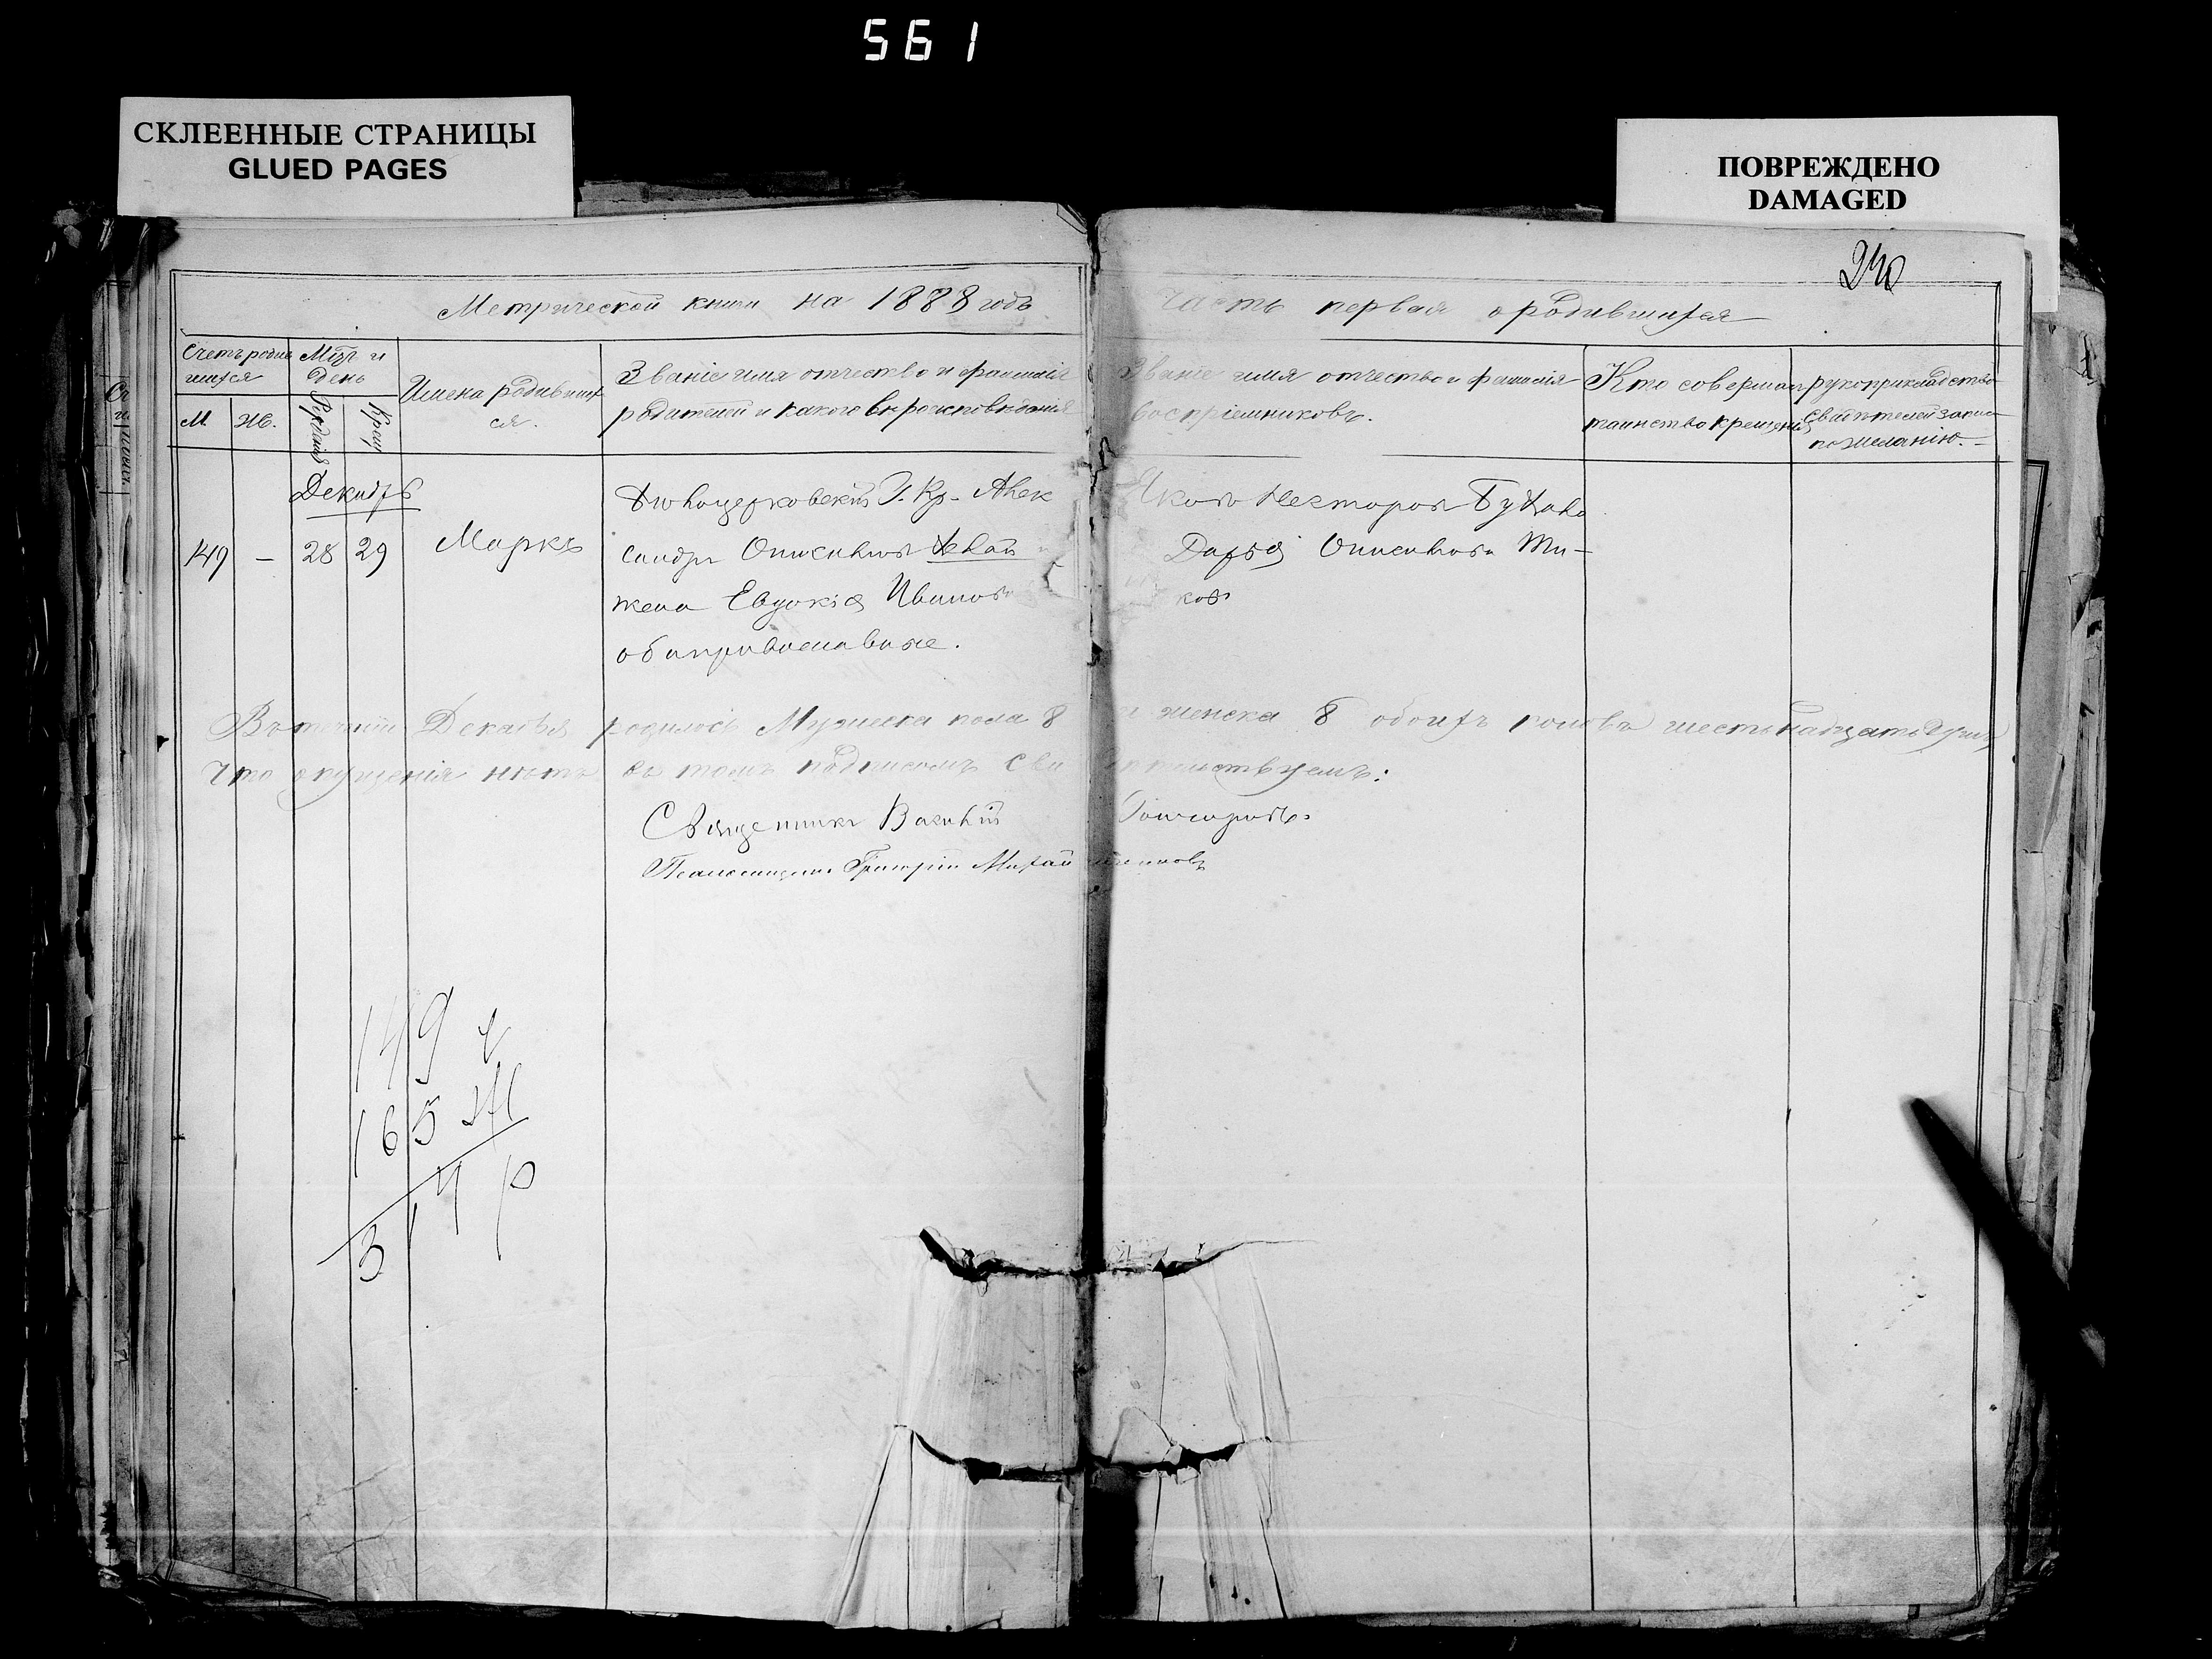 561
СКЛЕЕННЫЕ СТРАНИЦЫ
GLUED PAGES
ПОВРЕЖДЕНО
DAMAGED
240
Метрической книги на 1888 годъ
часть первая о родившихся
Счетъ родив
шихся
М.
Ж.
Мцъ и
день
Рожденія
Крещ
Имена родивших
ся.
Званіе имя отчество и фамилія
родителей и какого вѣроисповѣданія
Званіе имя отчество и фамилія
воспріемниковъ.
Кто совершал
таинство крещенія
рукоприкладство
свидѣтелей записи
по желанію.
Декабрь
149 – 28 29 Маркъ
Кр. Алек
сандръ
жена Евдокія Иванов
оба православные.
Яковъ Несторовъ
Дарья
ков
Въ теченіи Декабря родилось Мужеска пола 8 женска 8 обоихъ половъ шестьнадцать душъ
Что опущенія нѣтъ въ томъ подписомъ сви тельствуемъ:
Священникъ Василій Гончаровъ
Псаломщикъ Григорій Михай
149
165
314